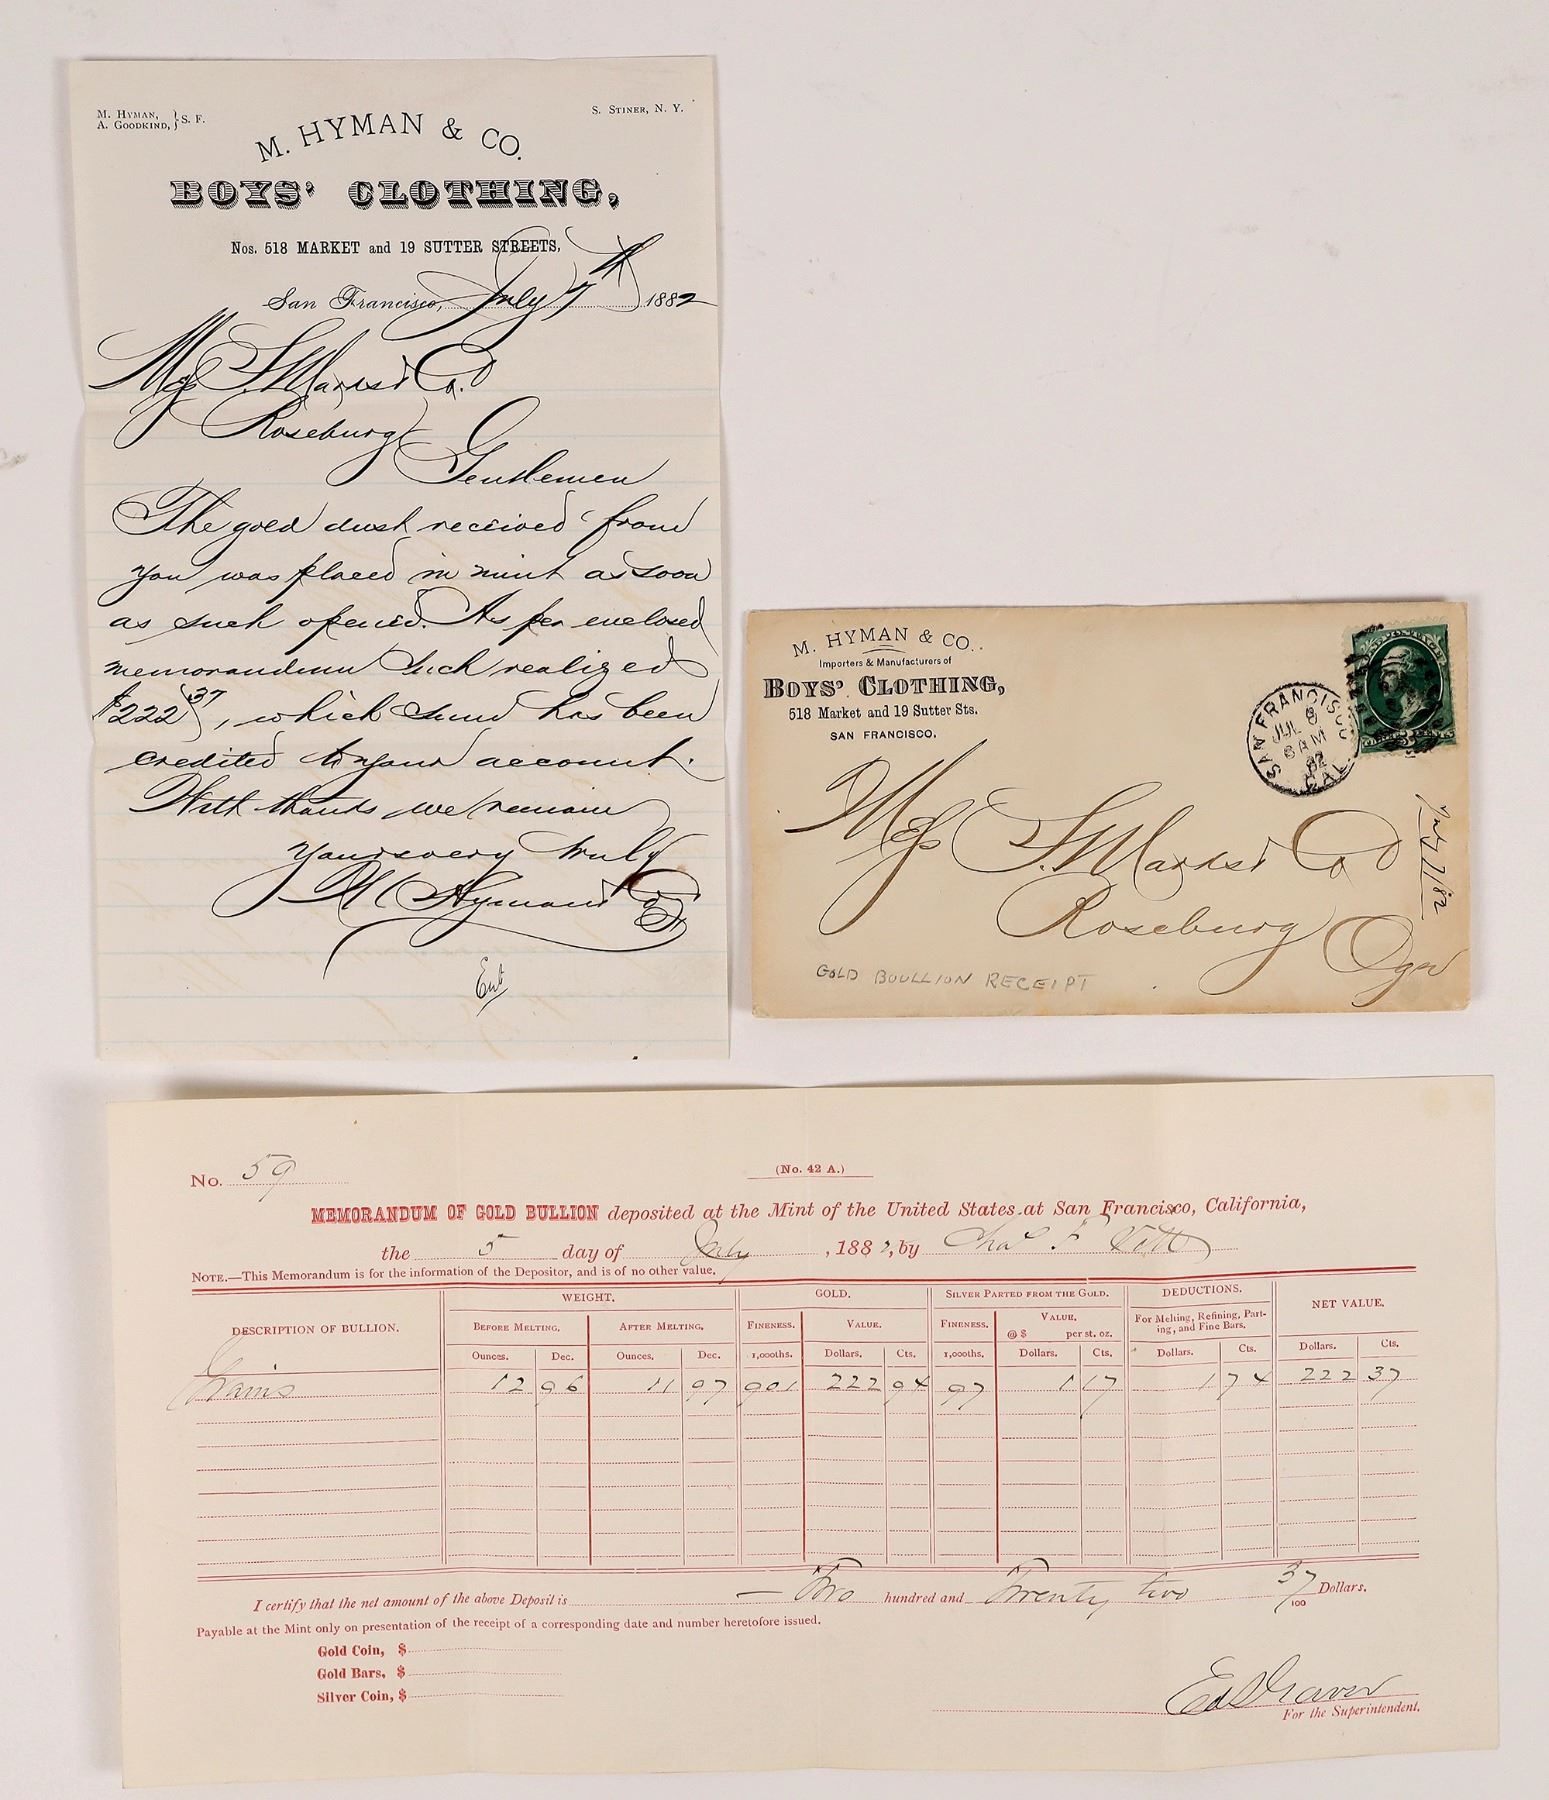 M. HYMAN,
A. GOODKIND, } S. F.
S. STINER, N. Y.
M. HYMAN & CO.
BOYS' CLOTHING,
Nos. 518 MARKET and 19 SUTTER STREETS,
San Francisco, July 7th 1882
Mess S. Marks & Co.
Roseburg
Gentlemen
The gold dust received from
you was placed in mint as soon
as such opened. As per enclosed
memorandum such realized
$222 37, which sum has been
credited to your account.
With thanks we remain
Yours very truly
M Hyman & Co
M. HYMAN & CO.
Importers & Manufacturers of
BOYS' CLOTHING,
518 Market and 19 Sutter Sts.
SAN FRANCISCO.
SAN FRANCISCO CAL
JUL 8
6 AM
82
Mess S. Marks & Co
Roseburg
Ogn
July 7/82
GOLD BOULLION RECEIPT
No. 59
(No. 42 A.)
MEMORANDUM OF GOLD BULLION deposited at the Mint of the United States at San Francisco, California,
the 5 day of July, 1882, by Chas F
NOTE.—This Memorandum is for the information of the Depositor, and is of no other value.
DESCRIPTION OF BULLION. WEIGHT. GOLD. SILVER PARTED FROM THE GOLD. DEDUCTIONS. NET VALUE.
BEFORE MELTING. AFTER MELTING. FINENESS. VALUE. FINENESS. VALUE. @ $ per st. oz. For Melting, Refining, Parting, and Fine Bars.
Ounces. Dec. Ounces. Dec. 1,000ths. Dollars. Cts. 1,000ths. Dollars. Cts. Dollars. Cts. Dollars. Cts.
Grains 12 96 11 97 901 222 94 97 1 17 1 74 222 37
I certify that the net amount of the above Deposit is — Two hundred and Twenty two 37/100 Dollars.
Payable at the Mint only on presentation of the receipt of a corresponding date and number heretofore issued.
Gold Coin, $
Gold Bars, $
Silver Coin, $
For the Superintendent.